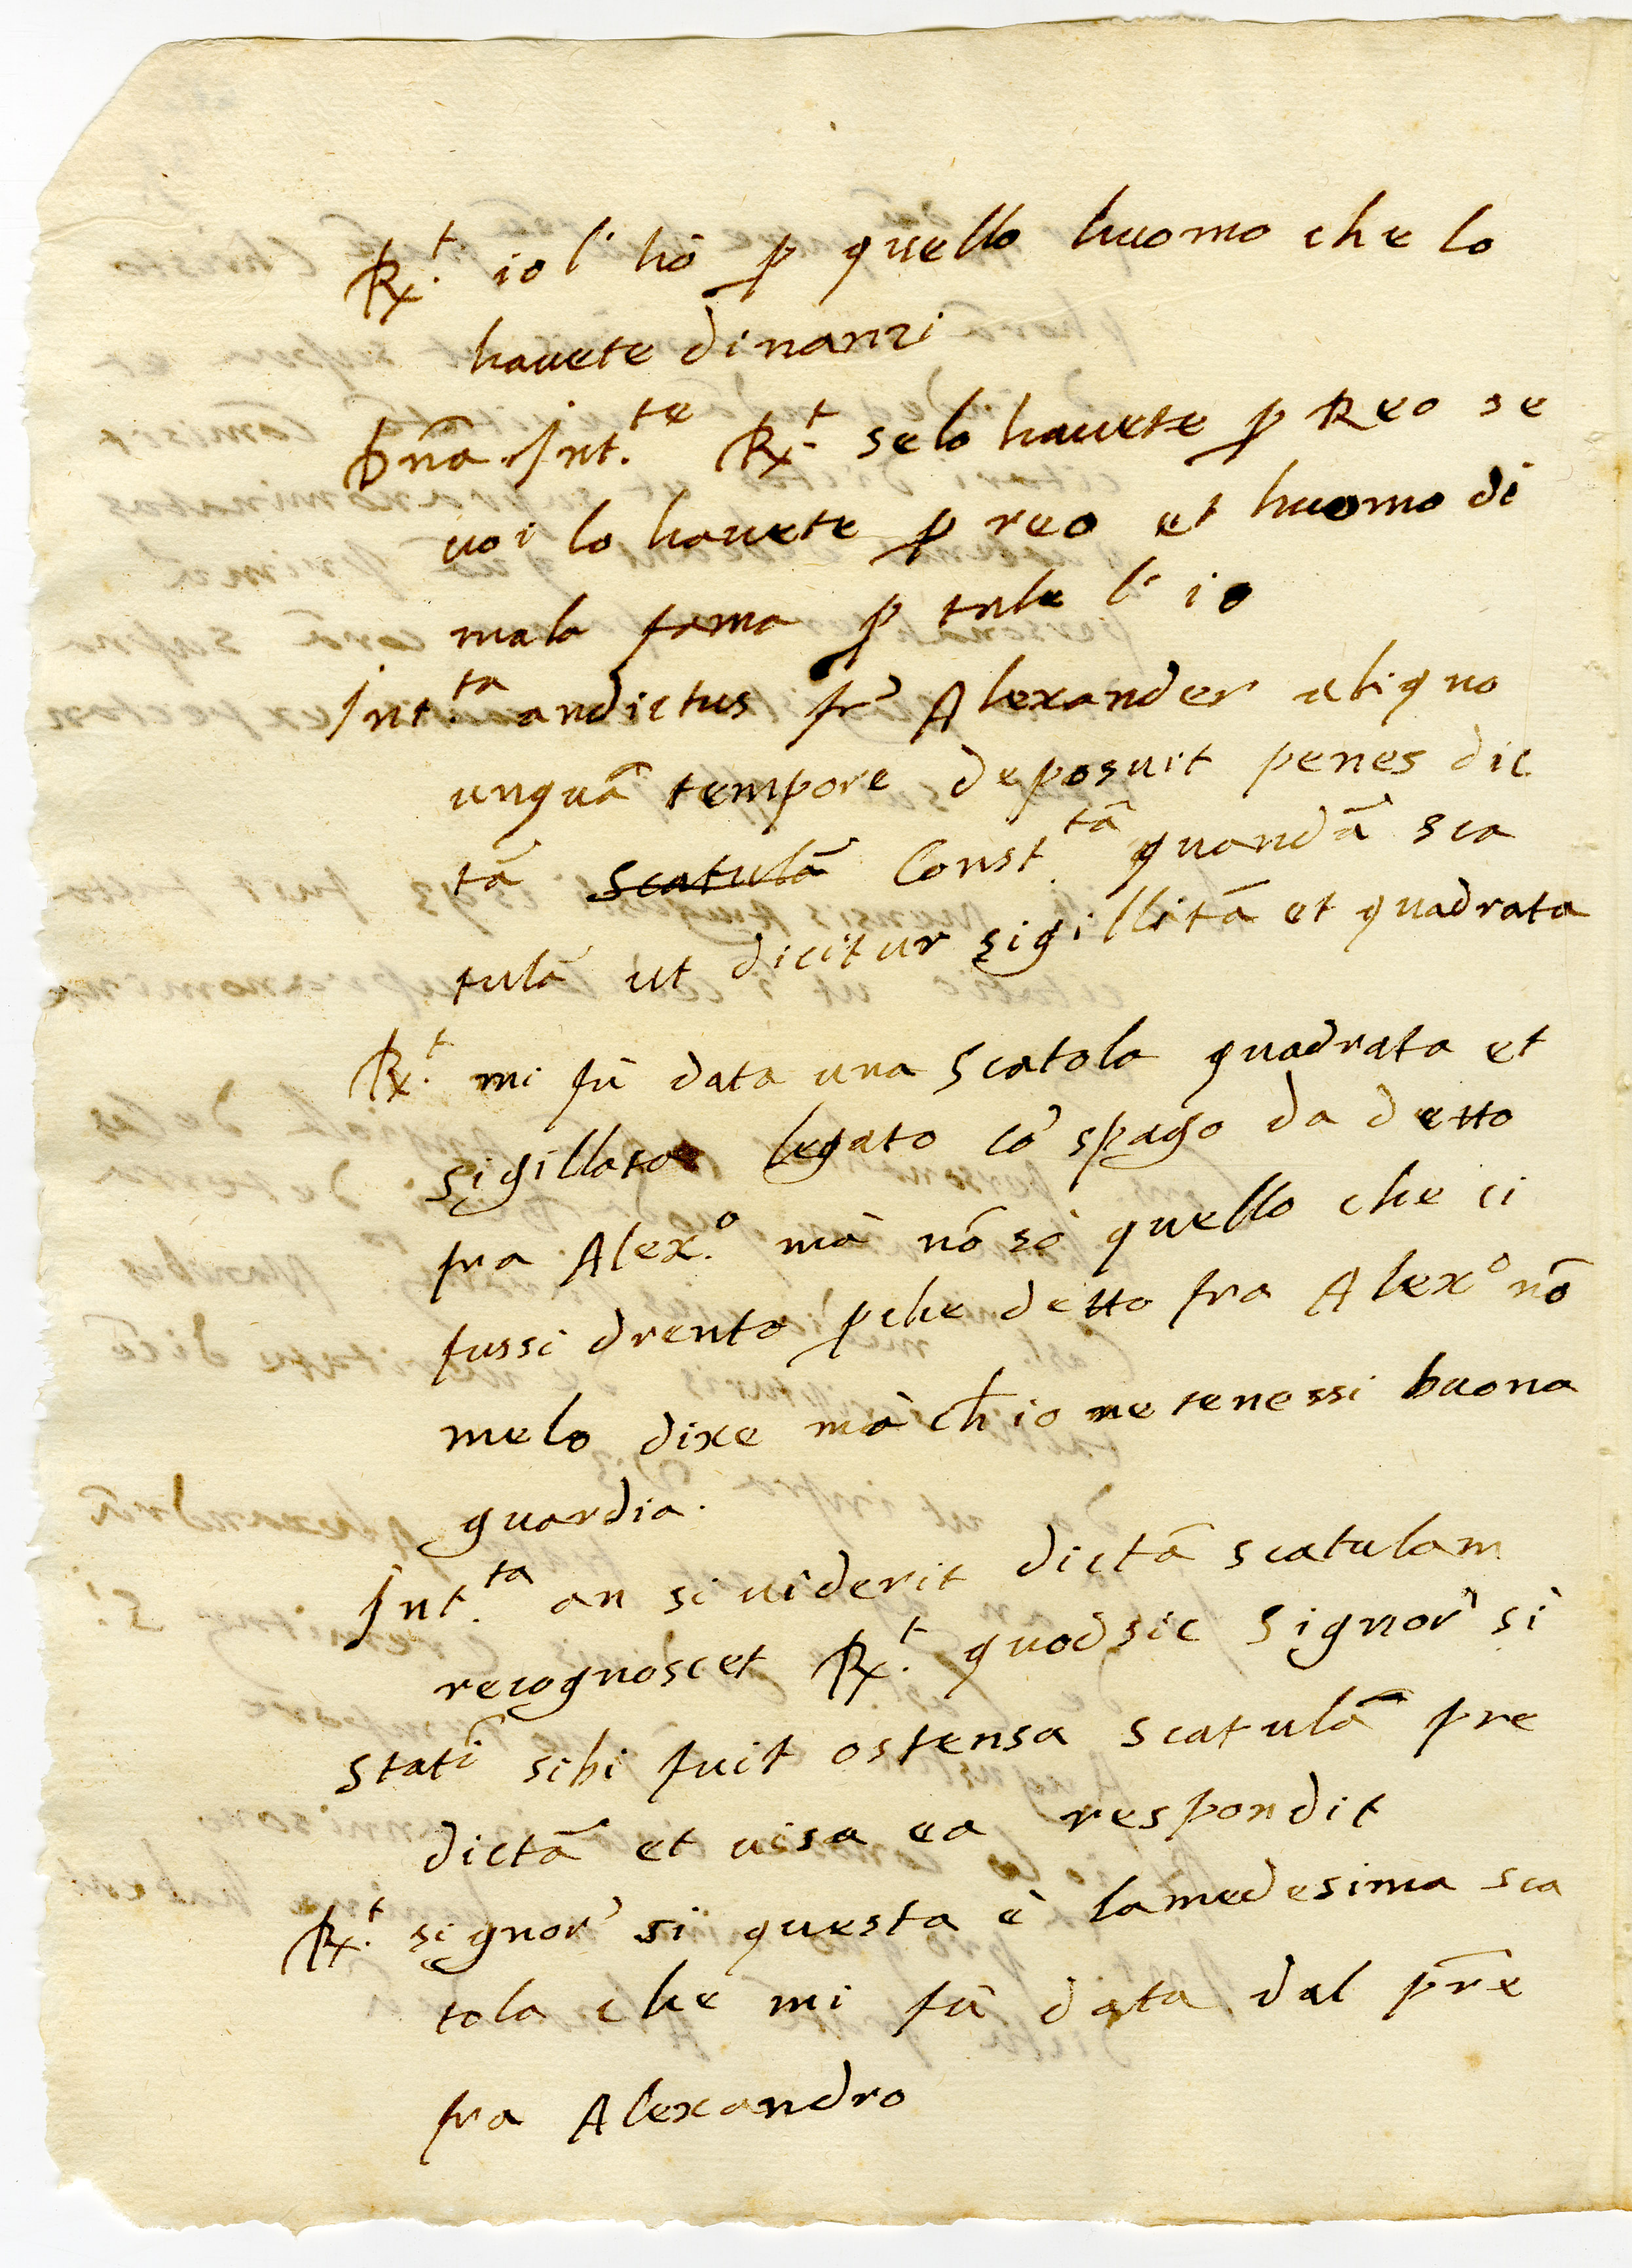 Rx.t io l' hò p quello huomo che lo
havete dinanzi
Dñā Int.te Rx.t selo havete p Reo se
voi lo havete p reo et huomo di
mala fama p tale l' io
Int.ta an dictus fr̃ Alexander aliquo
unquā tempore deposuit penes dic
tā scatulā Const.tā quandā sca
tulā ut dicitur sigillitā et quadrata
Rx.t mi fù data una scatola quadrata et
sigillata legato cō spago da detto
fra Alex.o mà nō sò quello che ci
fussi drento pche detto fra Alex.o nō
melo dixe mà ch̃ io ne tenessi buona
guardia.
Int.ta an si viderit dictā scatulam
recognoscet Rx.t quod sic signor' sì
statī sibi fuit ostensa scatulā pre
dictā et visa ea respondit
Rx.t signor' si questa è lamedesima sca
tola che mi fù data dal pr̃e
fra Alexandro